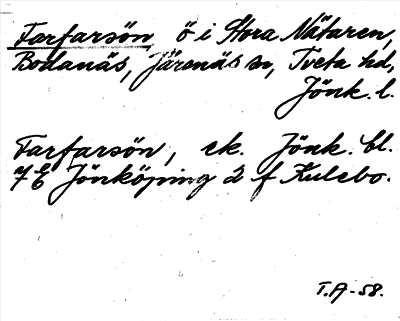 Farfarsön, ö i Stora Nätaren,
Bodanäs, Järsnäs sn, Tveta hd,
Jönk. l.
Farfarsön, ek. Jönk. bl.
7 E Jönköping 2 f Kulebo.
T.A-58.